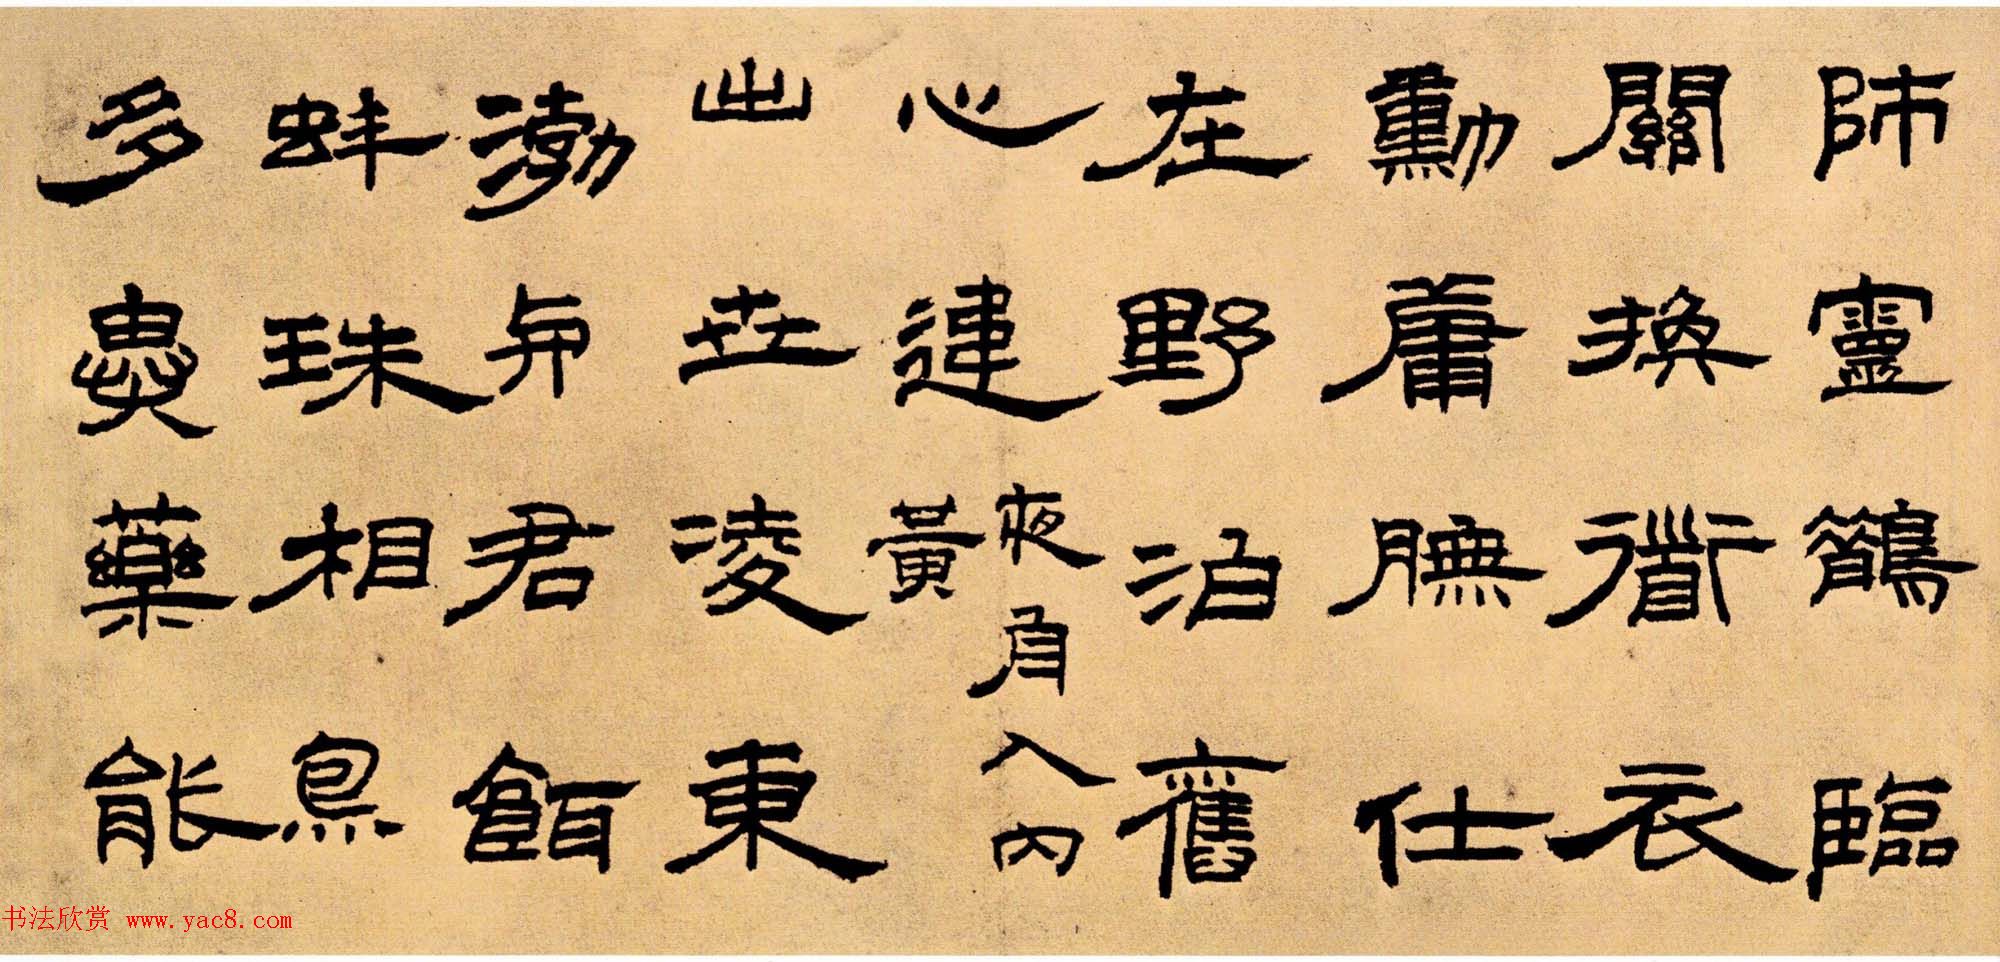 師靈鶴臨
關換衜衣
勳庸膴仕
在野泊舊
心違
夜角入內
黃
出世凌東
渤与君餌
蚌珠相
多藥能
书法欣赏 www.yac8.com